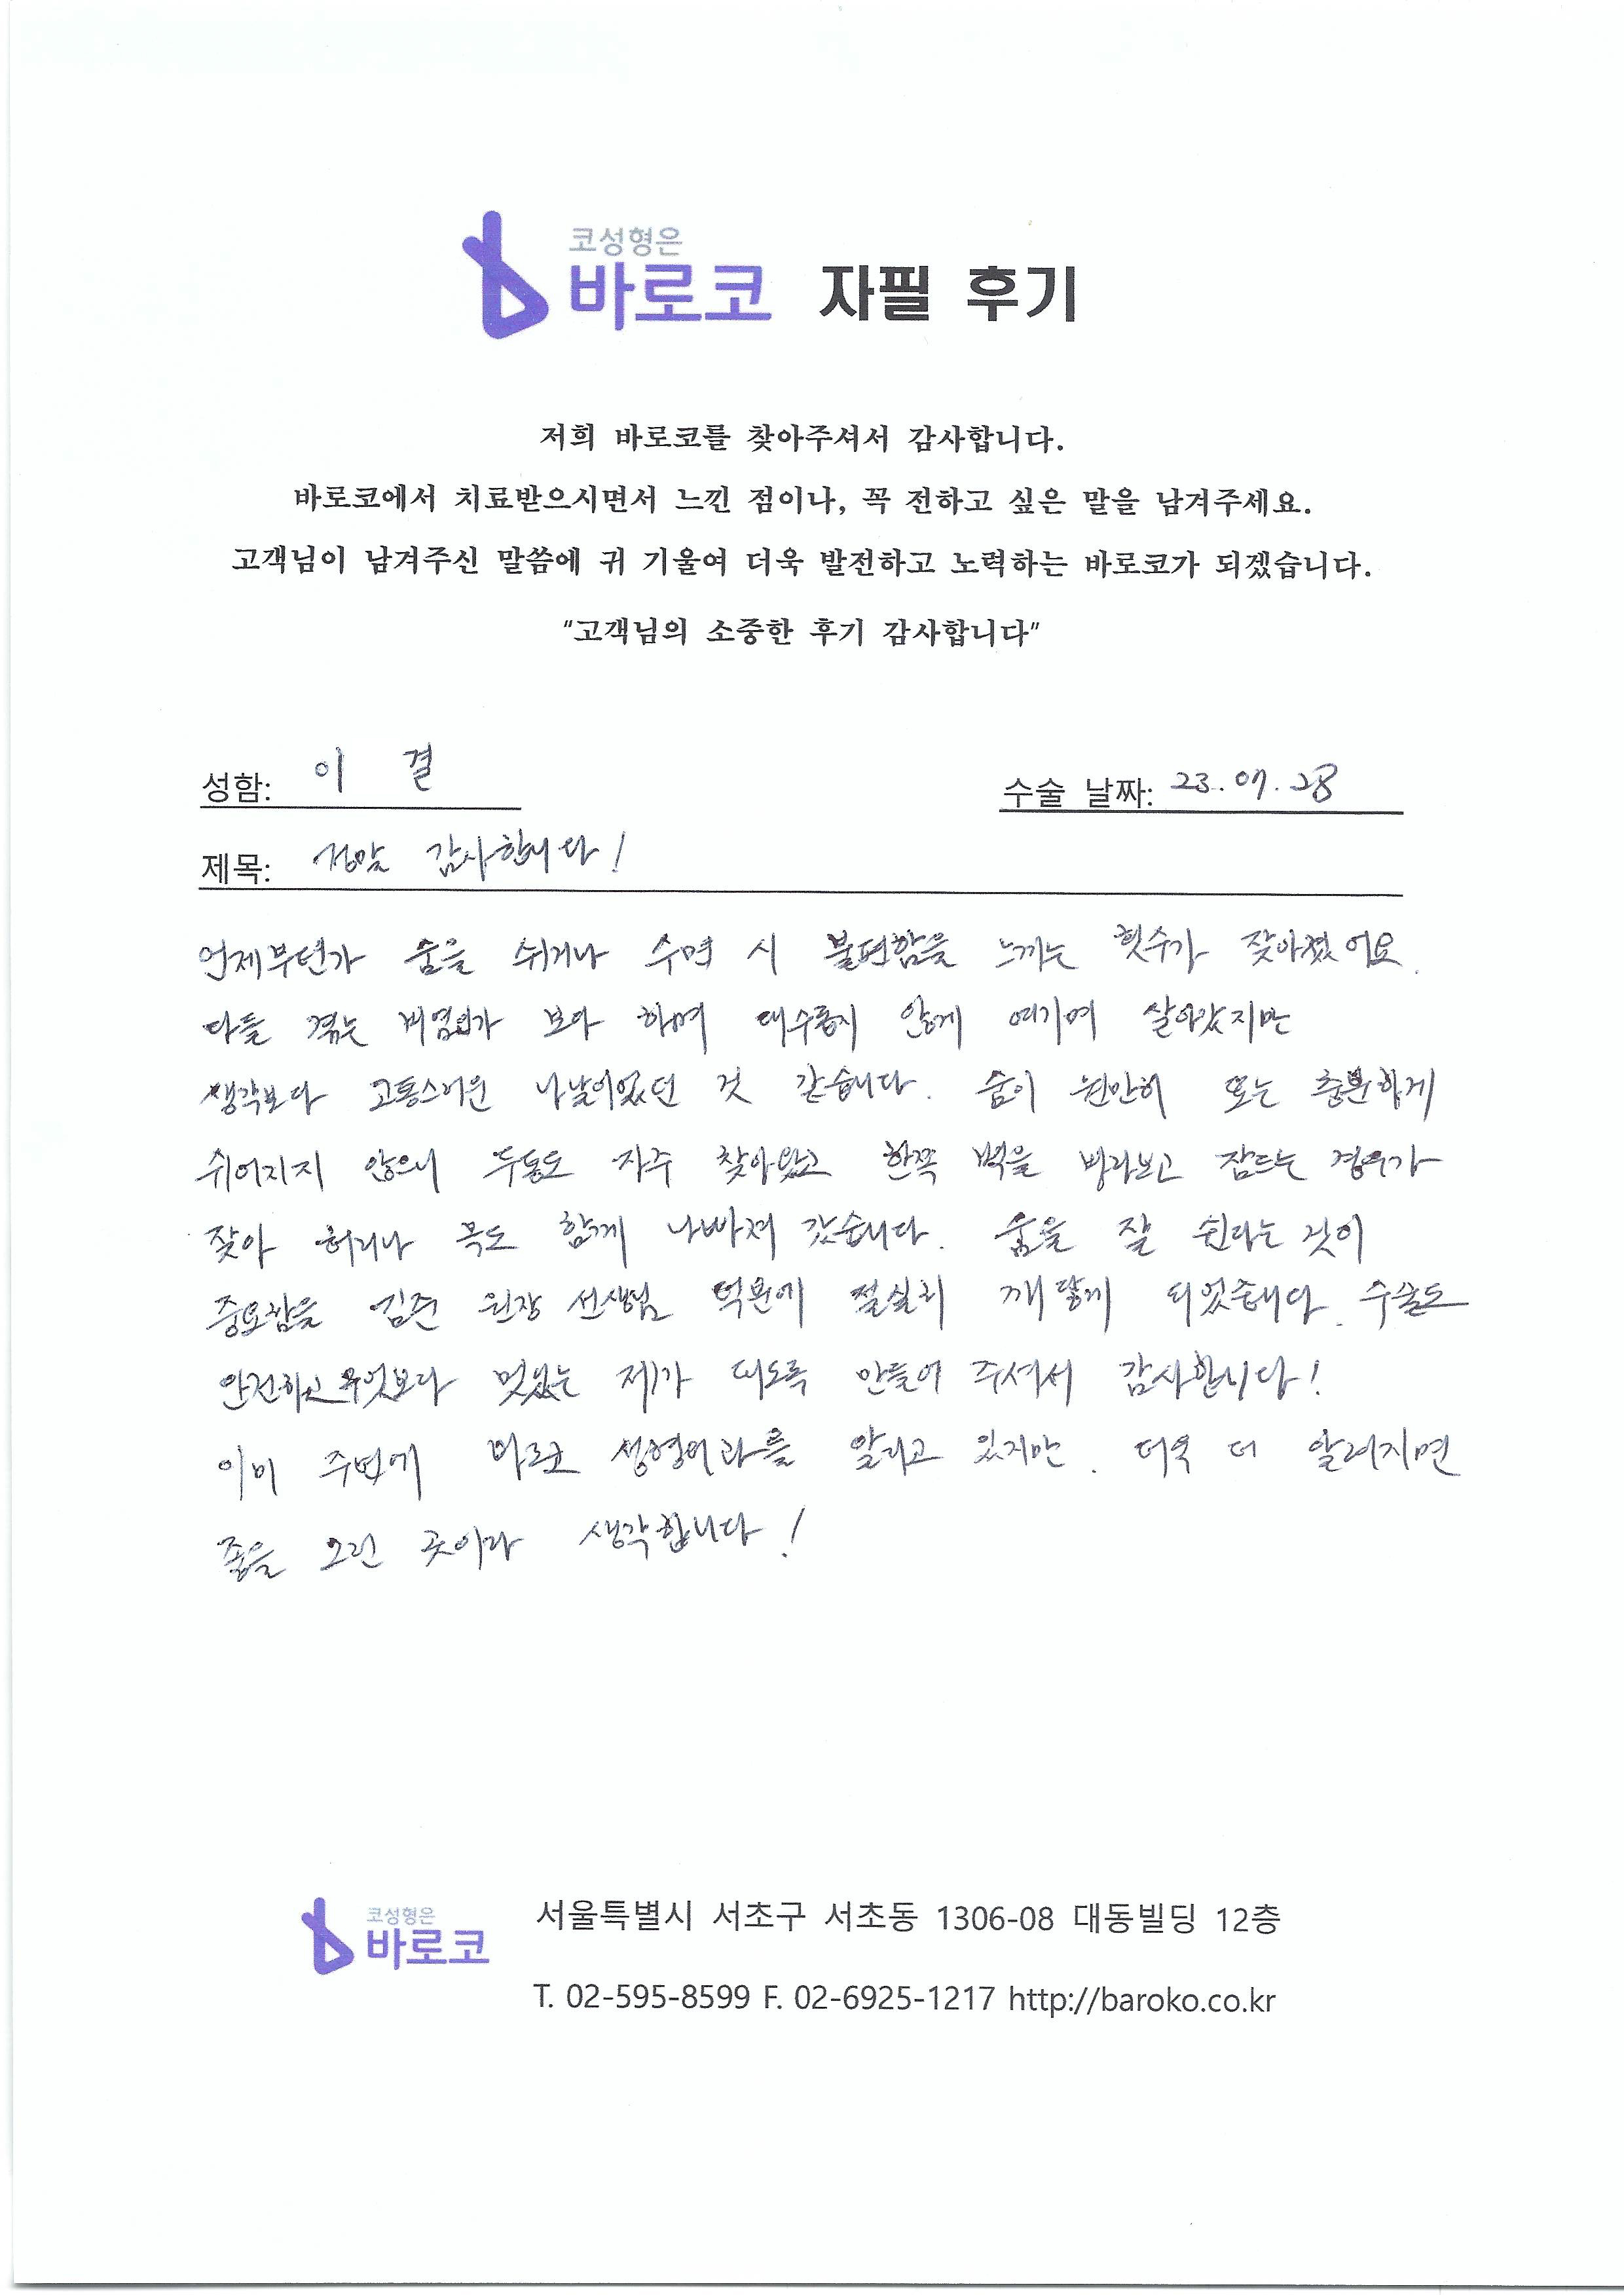 코성형은
바로코 자필 후기
저희 바로코를 찾아주셔서 감사합니다.
바로코에서 치료받으시면서 느낀 점이나, 꼭 전하고 싶은 말을 남겨주세요.
고객님이 남겨주신 말씀에 귀 기울여 더욱 발전하고 노력하는 바로코가 되겠습니다.
"고객님의 소중한 후기 감사합니다"
성함: 이 결 수술 날짜: 23. 07. 28
제목: 정말 감사합니다!
언제부턴가 숨을 쉬거나 수면 시 불편함을 느끼는 횟수가 잦아졌어요.
다들 겪는 비염인가 보다 하며 대수롭지 않게 여기며 살아갔지만
생각보다 고통스러운 나날이었던 것 같습니다. 숨이 원만히 또는 충분하게
쉬어지지 않으니 두통도 자주 찾아왔고 한쪽 벽을 바라보고 잠드는 경우가
잦아 허리나 목도 함께 나빠져 갔습니다. 숨을 잘 쉰다는 것이
중요함을 김준 원장 선생님 덕분에 절실히 깨닿게 되었습니다. 수술도
안전하고 무엇보다 멋있는 제가 되도록 만들어 주셔서 감사합니다!
이미 주변에 바로코 성형외과를 알리고 있지만. 더욱 더 알려지면
좋을 그런 곳이라 생각합니다!
코성형은
바로코
서울특별시 서초구 서초동 1306-08 대동빌딩 12층
T. 02-595-8599 F. 02-6925-1217 http://baroko.co.kr